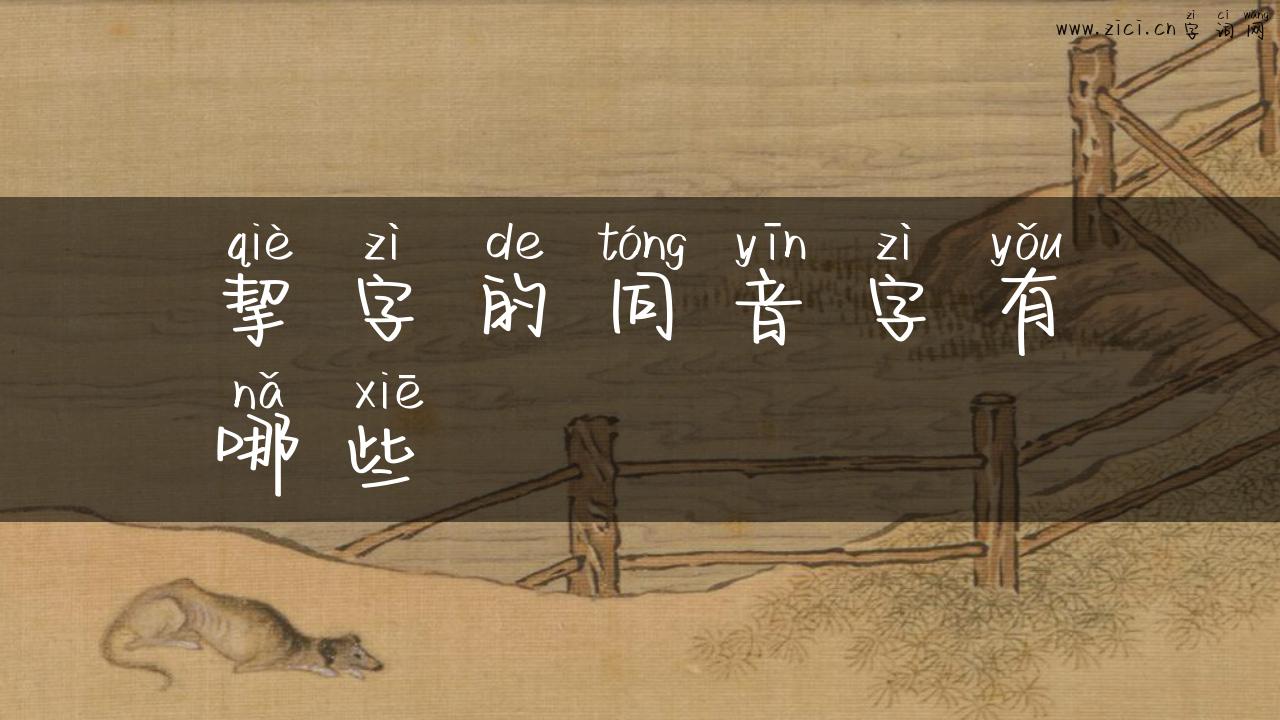 zì cì wǎng
www.zici.cn 字词网
qiè zì de tóng yīn zì yǒu
挈字的同音字有
nǎ xiē
哪些